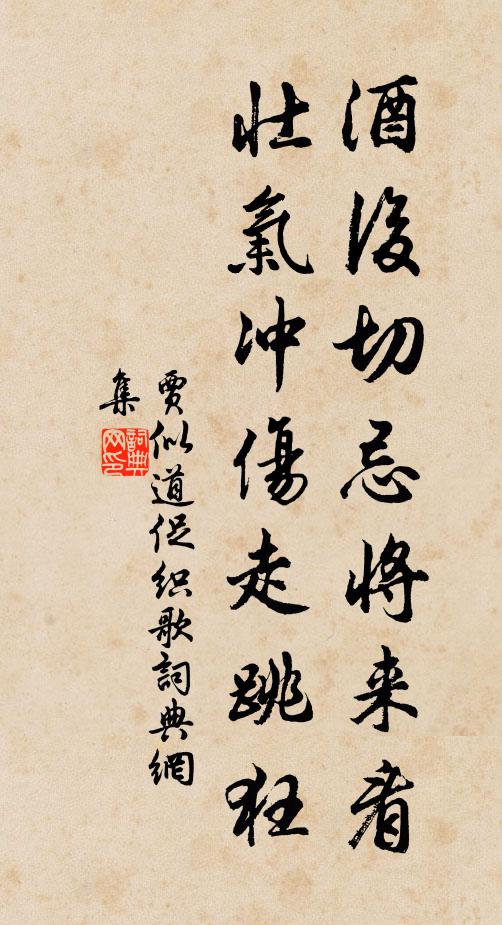 酒後切忌將来看
壮氣冲傷走跳狂
賈似道促織歌詞典網
集
詞典網印